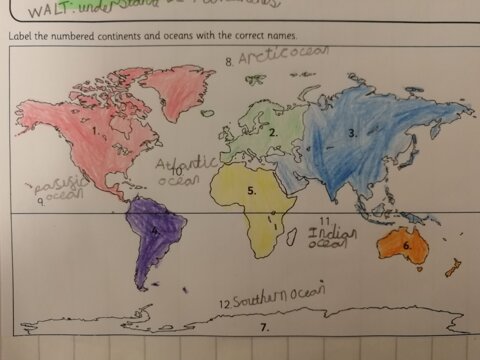 WALT: understand
Label the numbered continents and oceans with the correct names.
8. Arctic ocean
1.
2.
3.
Atlantic
10
ocean
pasific
9 ocean
5.
4.
11
Indian
ocean
6.
12. Southern ocean
7.